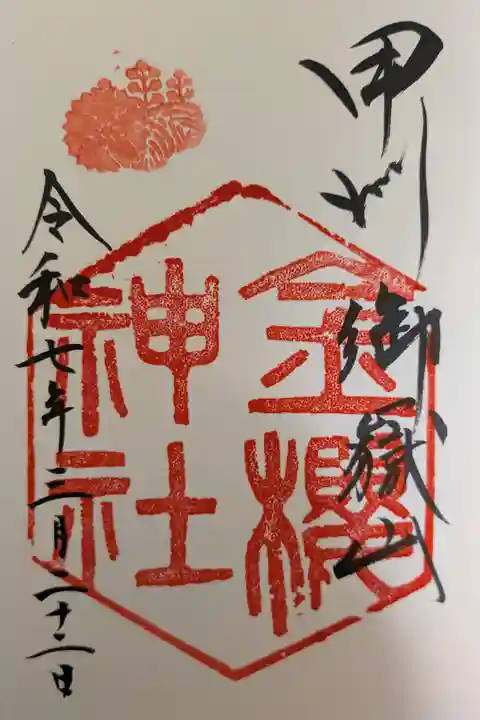 甲州御嶽山
金櫻
神社
令和七年三月二十二日